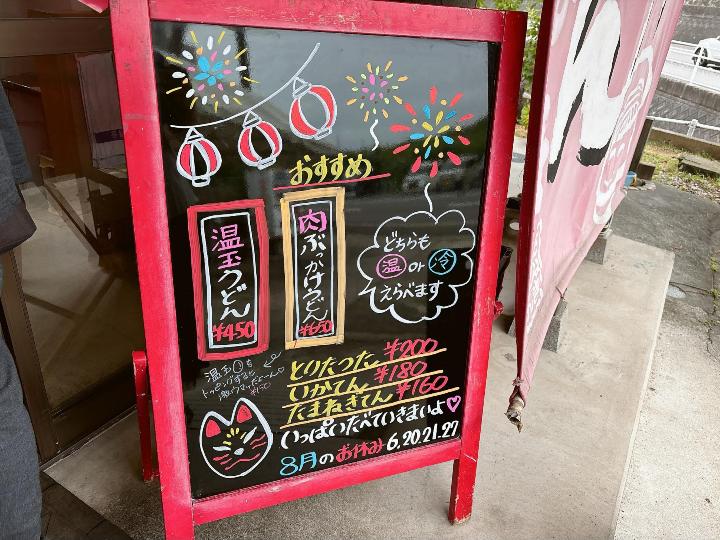 おすすめ
温玉うどん
¥450
肉ぶっかけうどん
¥650
どちらも
温 or 冷
えらべます
とりたつた ¥200
いかてん ¥180
たまねぎてん ¥160
いっぱいたべていきまいよ♡
8月のお休み 6,20,21,27
温玉
トッピングすると
ん